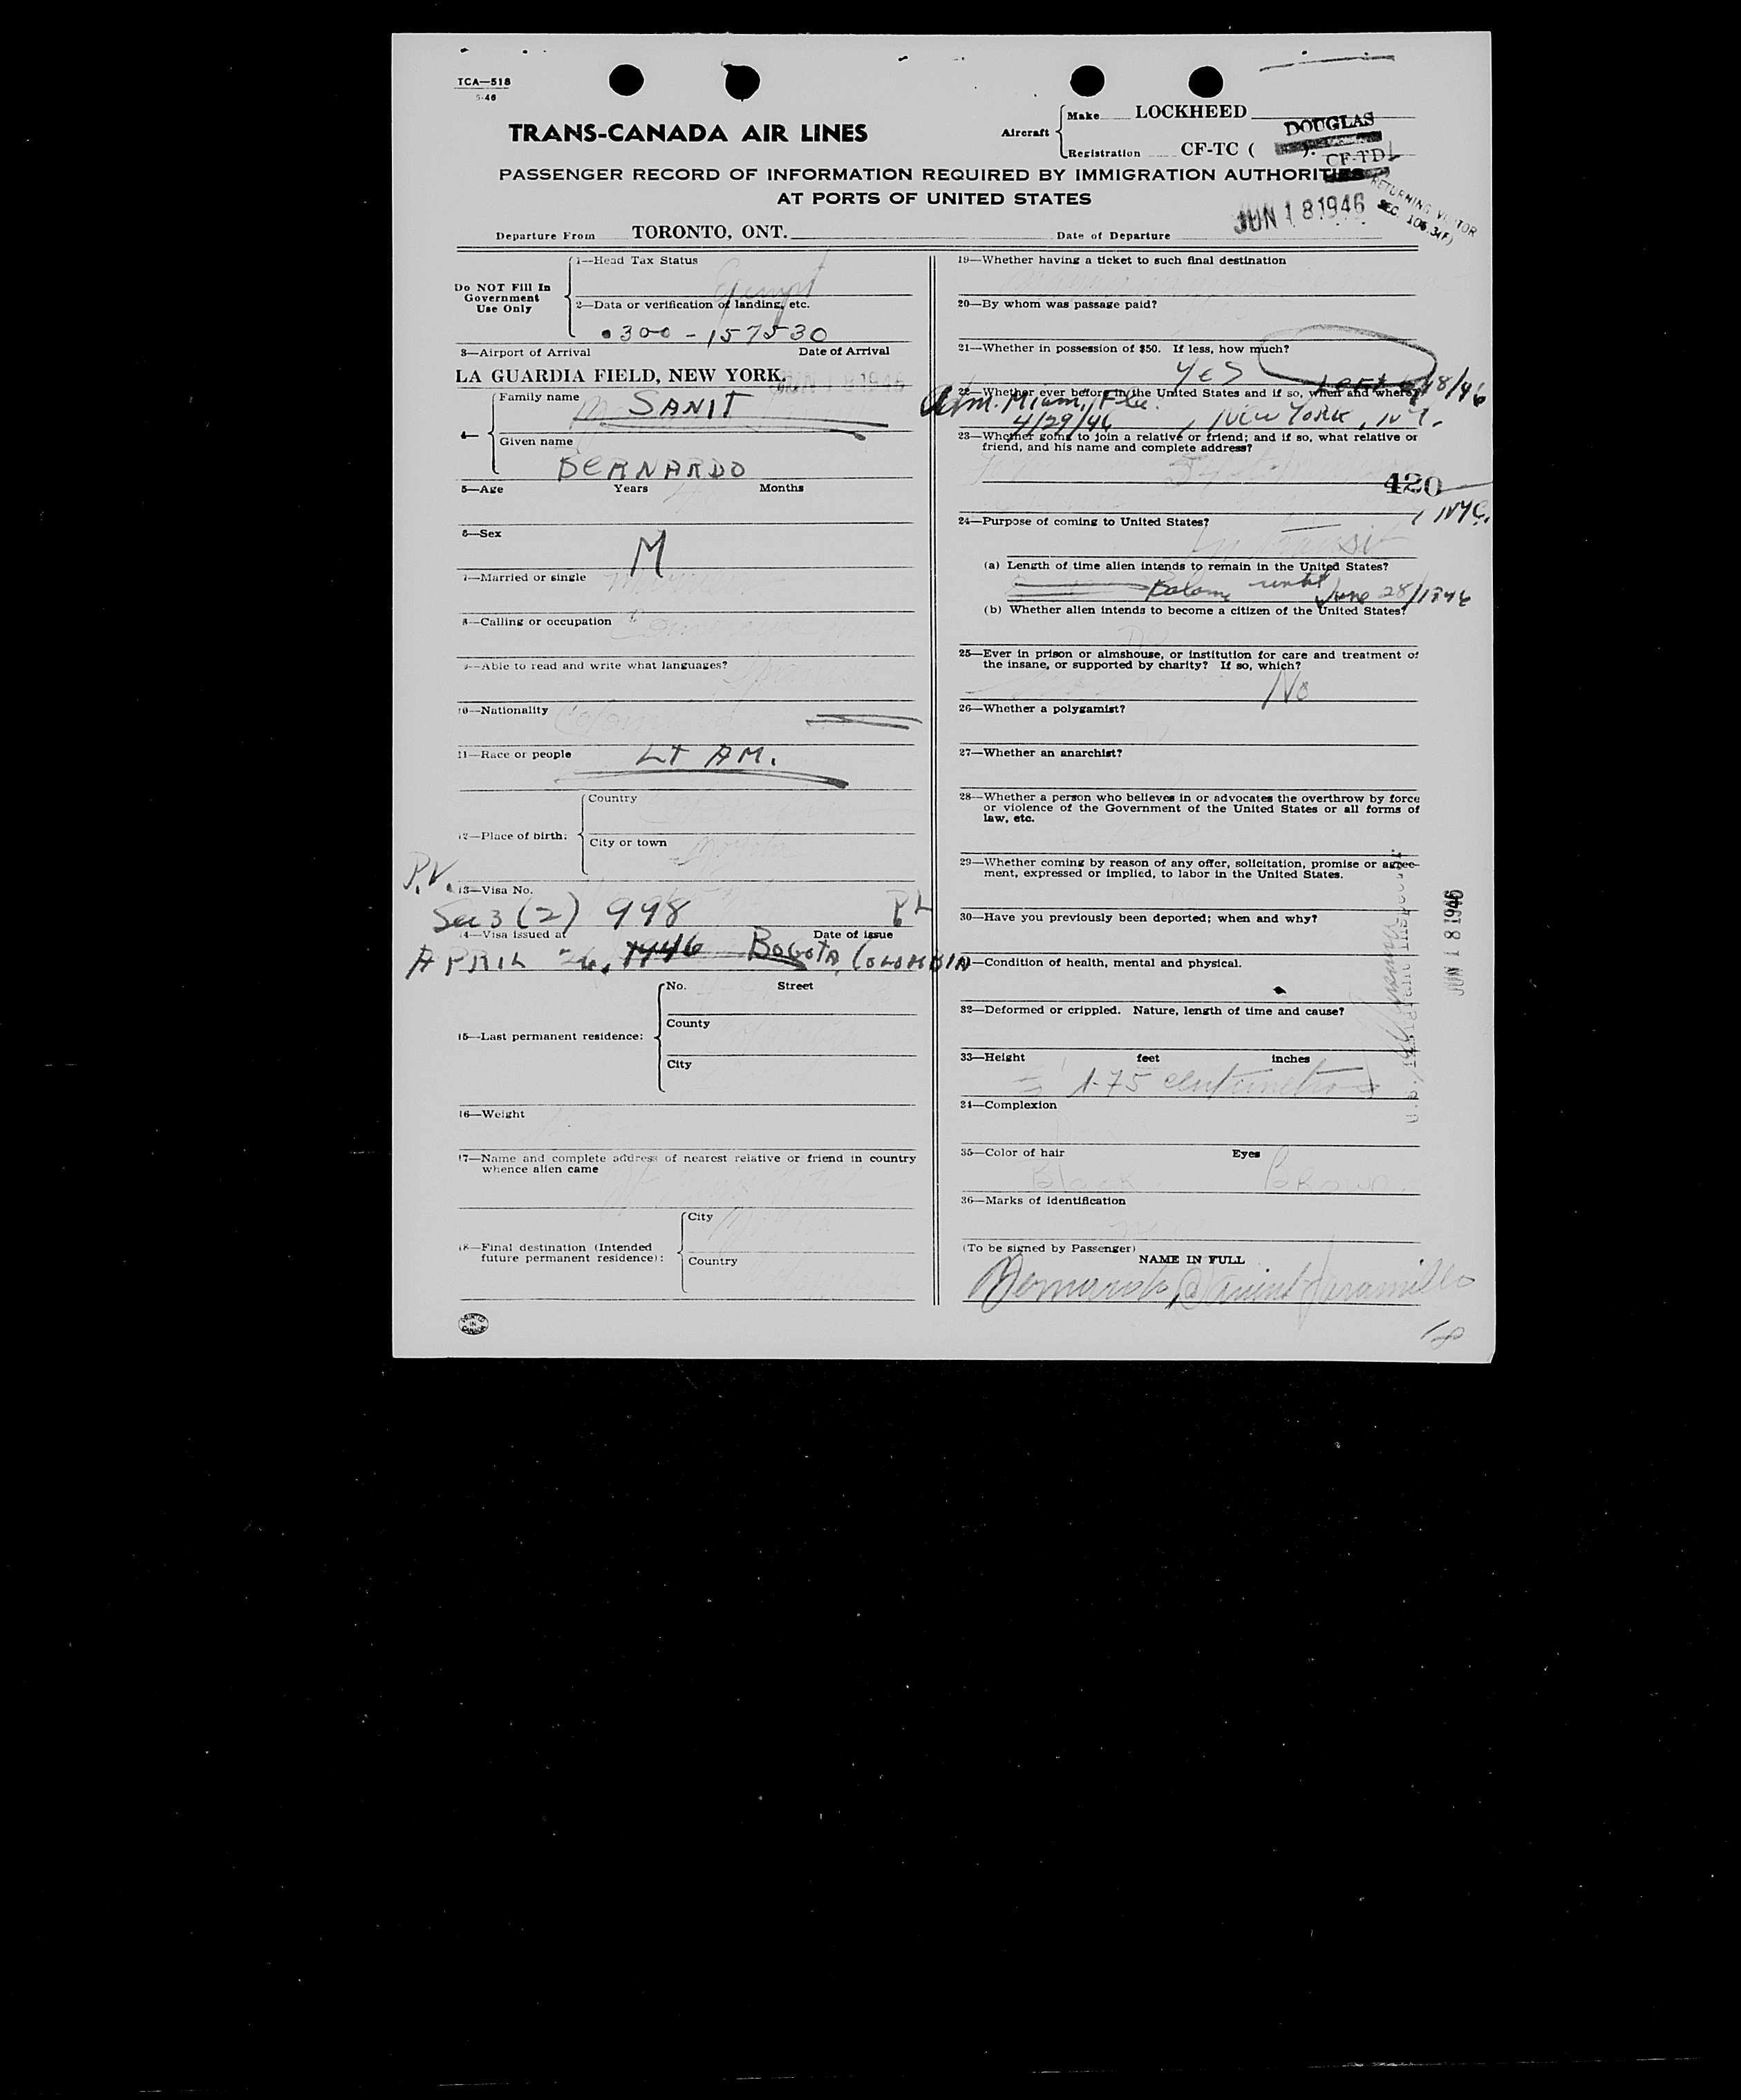 TCA—518
5-46
TRANS-CANADA AIR LINES
Aircraft
Make LOCKHEED
DOUGLAS
Registration CF-TC ( ).
CF-TD
PASSENGER RECORD OF INFORMATION REQUIRED BY IMMIGRATION AUTHORITIES
AT PORTS OF UNITED STATES
RETURNING VISITOR
SEC. 106.3(F)
JUN 18 1946
Departure From TORONTO, ONT.
Date of Departure
Do NOT Fill In
Government
Use Only
1—Head Tax Status
Exempt
2—Data or verification of landing, etc.
0300-157530
3—Airport of Arrival Date of Arrival
LA GUARDIA FIELD, NEW YORK. JUN 18 1946
4—
Family name
SANIT
Given name
BERNARDO
5—Age Years Months
6—Sex
M
7—Married or single
8—Calling or occupation
9—Able to read and write what languages?
Spanish
10—Nationality
11—Race or people LT AM.
12—Place of birth:
Country
City or town
P.V.
13—Visa No.
Sec 3 (2) 998
14—Visa issued at Date of issue
APRIL 26, 1946 BOGOTA, COLOMBIA
15—Last permanent residence:
No. Street
County
City
16—Weight
17—Name and complete address of nearest relative or friend in country
whence alien came
18—Final destination (Intended
future permanent residence):
City
Country
PRINTED
IN
CANADA
19—Whether having a ticket to such final destination
20—By whom was passage paid?
21—Whether in possession of $50. If less, how much?
YES
22—Whether ever before in the United States and if so, when and where?
Adm. Miami, Fla.
4/29/46 NEW YORK, N.Y.
23—Whether going to join a relative or friend; and if so, what relative or
friend, and his name and complete address?
420
NYC.
24—Purpose of coming to United States?
In transit
(a) Length of time alien intends to remain in the United States?
until June 28/1946
(b) Whether alien intends to become a citizen of the United States?
No
25—Ever in prison or almshouse, or institution for care and treatment of
the insane, or supported by charity? If so, which?
No
26—Whether a polygamist?
27—Whether an anarchist?
28—Whether a person who believes in or advocates the overthrow by force
or violence of the Government of the United States or all forms of
law, etc.
29—Whether coming by reason of any offer, solicitation, promise or agree-
ment, expressed or implied, to labor in the United States.
30—Have you previously been deported; when and why?
—Condition of health, mental and physical.
32—Deformed or crippled. Nature, length of time and cause?
33—Height feet inches
1.75
34—Complexion
35—Color of hair Eyes
Black Brown
36—Marks of identification
(To be signed by Passenger)
NAME IN FULL
Bernardo Sanint Jaramillo
18
JUN 18 1946